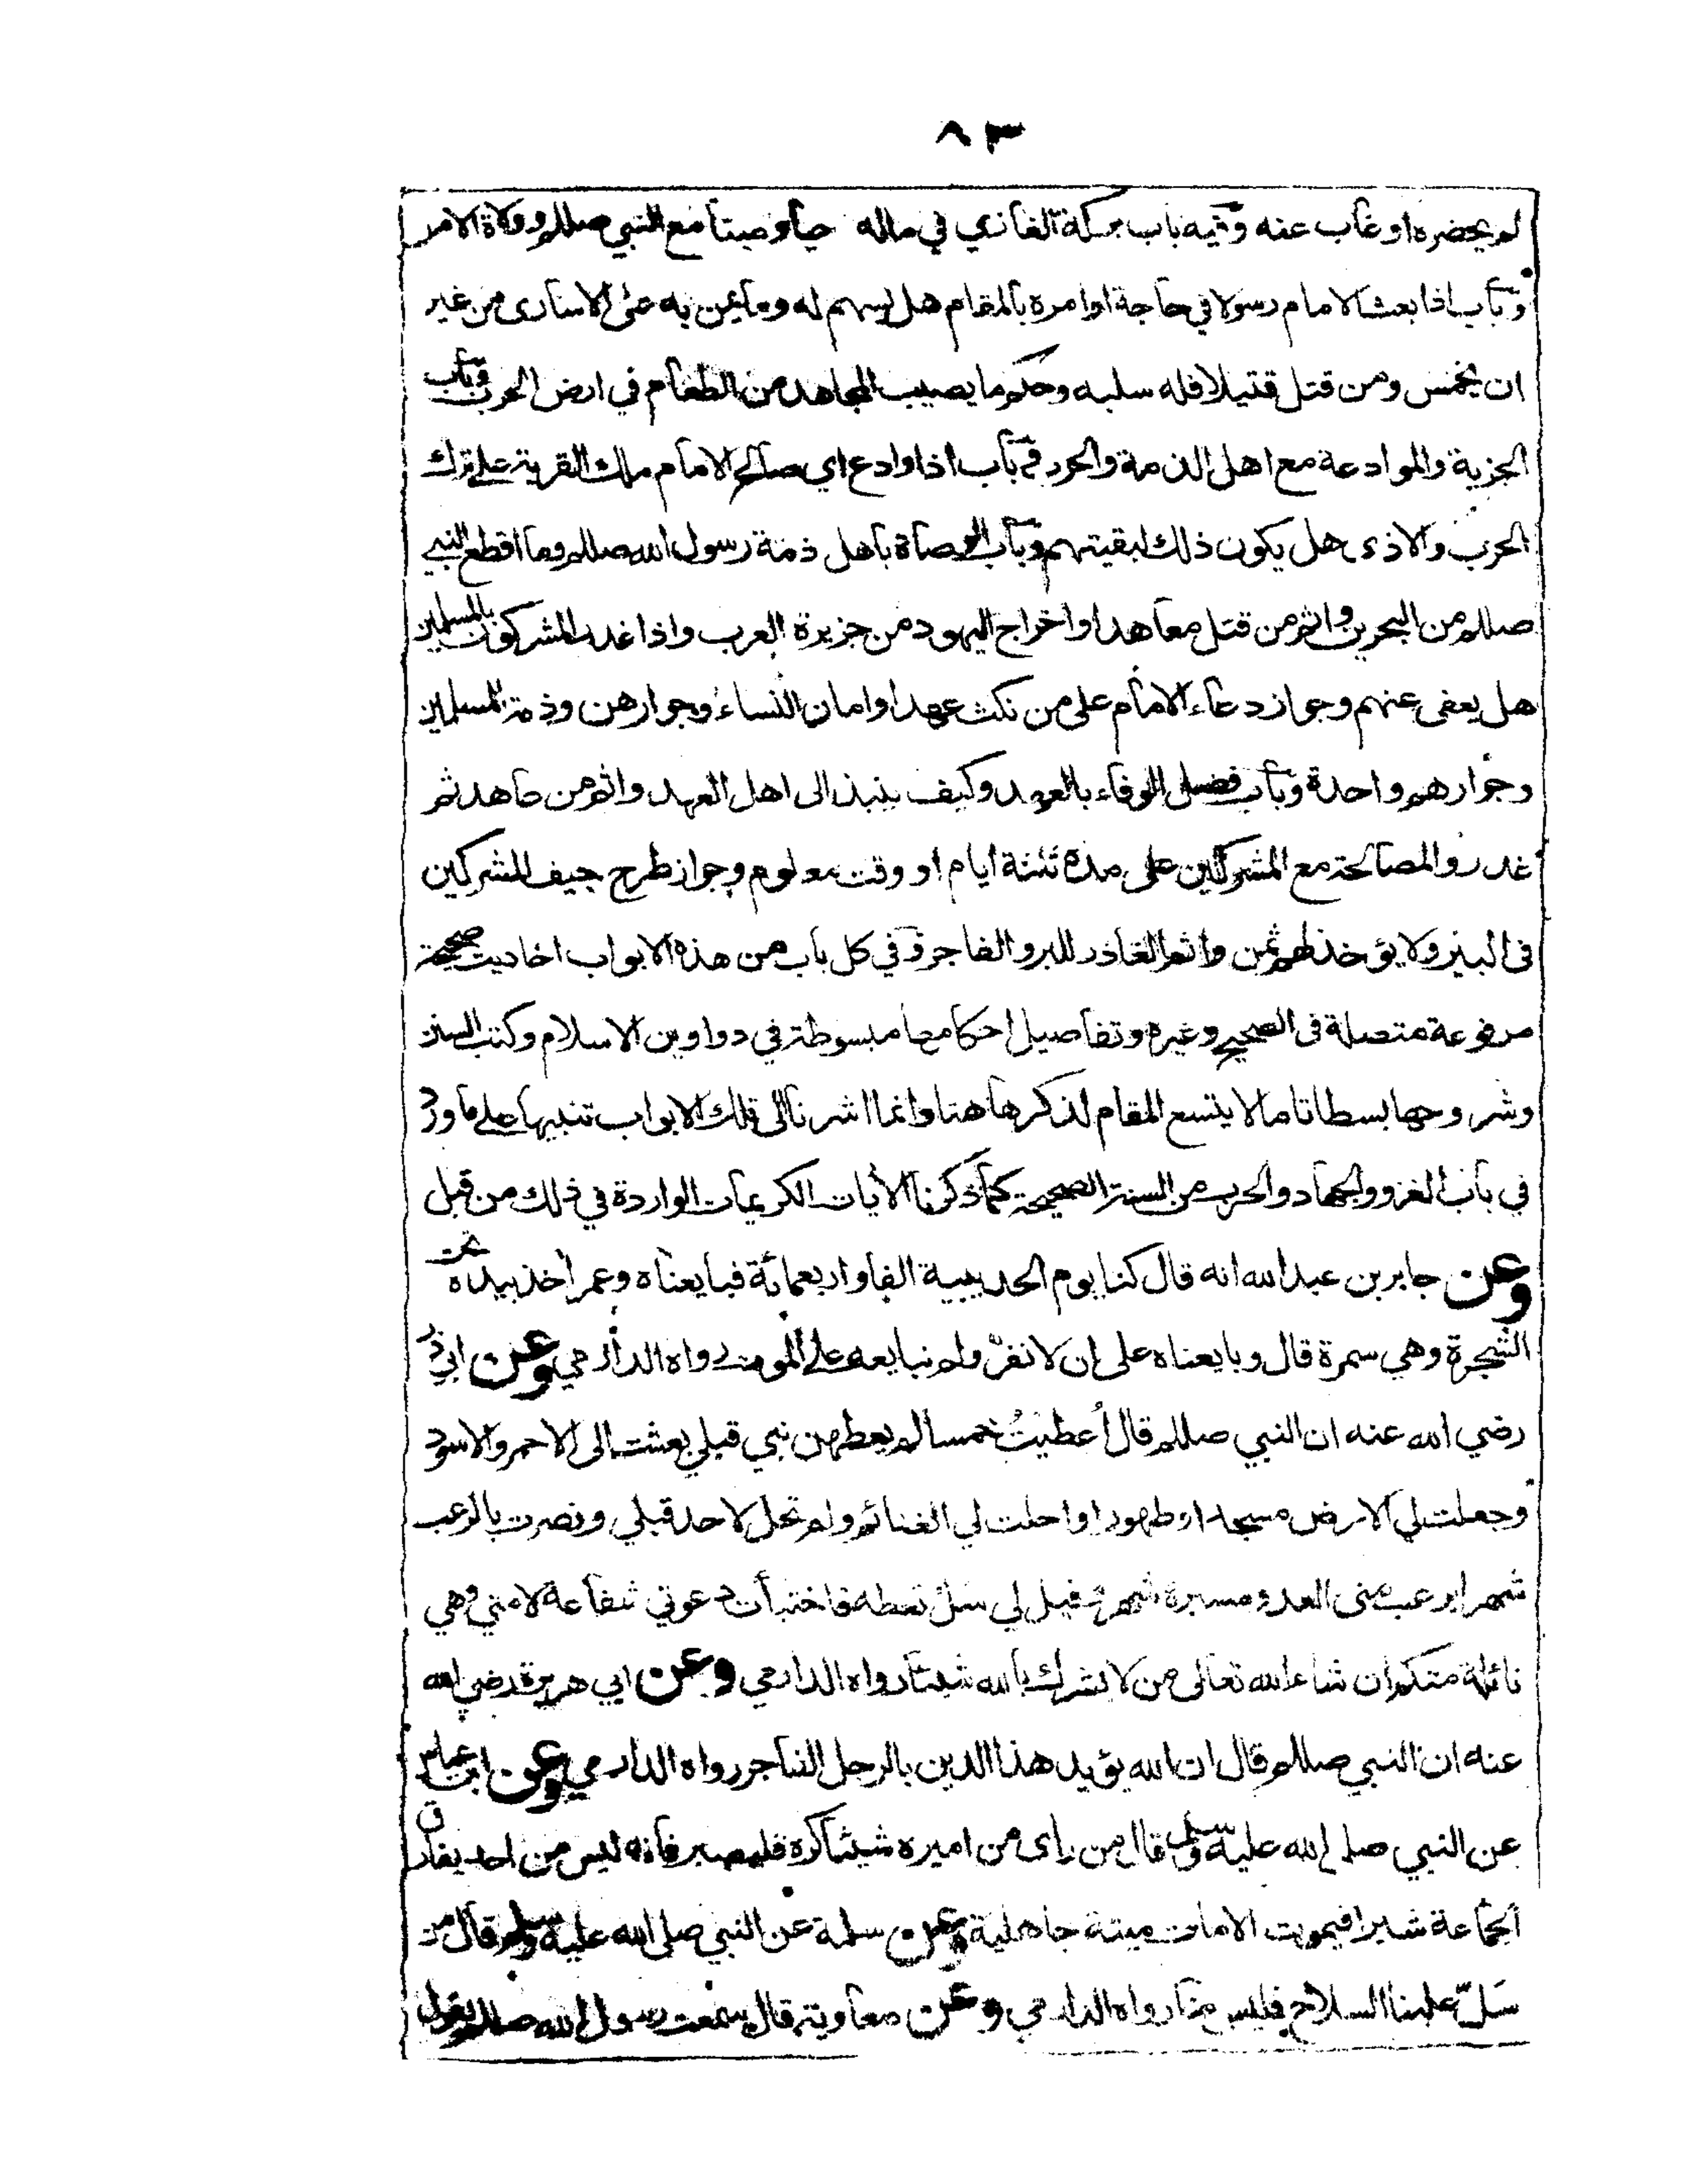 ٨٣
لم يحضره او غاب عنه وفيه باب بركة الغازي في ماله حيا وميتا مع النبي صللم وولاة الامر
وباب اذا بعث الامام رسولا في حاجة او امره بالمقام هل يسهم له وما يمن به على الاسارى من غير
ان يخمس ومن قتل قتيلا فله سلبه وحكم ما يصيب المجاهد من الطعام في ارض الحرب وباب
الجزية والموادعة مع اهل الذمة والحرب وباب اذا وادع اي صالح الامام ملك القرية على ترك
الحرب والاذى هل يكون ذلك لبقيتهم وباب الوصاة باهل ذمة رسول الله صللم وما اقطع النبي
صللم من البحرين واثم من قتل معاهدا واخراج اليهود من جزيرة العرب واذا غدر المشركون بالمسلمين
هل يعفى عنهم وجواز دعاء الامام على من نكث عهدا وامان النساء وجوارهن وذمة المسلمين
وجوارهم واحدة وباب فضل الوفاء بالعهد وكيف ينبذ الى اهل العهد واثم من عاهد ثم
غدر والمصالحة مع المشركين على مدة ثلثة ايام او وقت معلوم وجواز طرح جيف المشركين
في البئر ولا يؤخذ لهم ثمن واثم الغادر للبر والفاجر وفي كل باب من هذه الابواب احاديث صحيحة
مرفوعة متصلة فى الصحيح وغيره وتفاصيل احكامها مبسوطة في دواوين الاسلام وكتب السنن
وشروحها بسطا تاما لا يتسع المقام لذكرها هنا وانما اشرنا الى تلك الابواب تنبيها على ما ورد
في باب الغزو والجهاد والحرب من السنة الصحيحة كما ذكرنا الآيات الكريمات الواردة في ذلك من قبل
وعن جابر بن عبد الله انه قال كنا يوم الحديبية الفا واربعمائة فبايعناه وعمر آخذ بيده تحت
الشجرة وهي سمرة قال وبايعناه على ان لا نفر ولم نبايعه على الموت رواه الدارمي وعن ابي ذر
رضي الله عنه ان النبي صللم قال أعطيتُ خمسا لم يعطهن نبي قبلي بعثت الى الاحمر والاسود
وجعلت لي الارض مسجدا وطهورا واحلت لي الغنائم ولم تحل لاحد قبلي ونصرت بالرعب
شهرا يرعب منى العدو مسيرة شهر وقيل لي سل تعطه فاختبأت دعوتي شفاعة لامتي وهي
نائلة منكم ان شاء الله تعالى من لا يشرك بالله شيئا رواه الدارمي وعن ابي هريرة رضي الله
عنه ان النبي صللم قال ان الله يؤيد هذا الدين بالرجل الفاجر رواه الدارمي وعن ابن عباس
عن النبي صلى الله عليه وسلم قال من راى من اميره شيئا كره فليصبر فانه ليس من احد يفارق
الجماعة شبرا فيموت الا مات ميتة جاهلية وعن سلمة عن النبي صلى الله عليه وسلم قال من
سَلّ علينا السلاح فليس منا رواه الدارمي وعن معاوية قال سمعت رسول الله صللم يقول